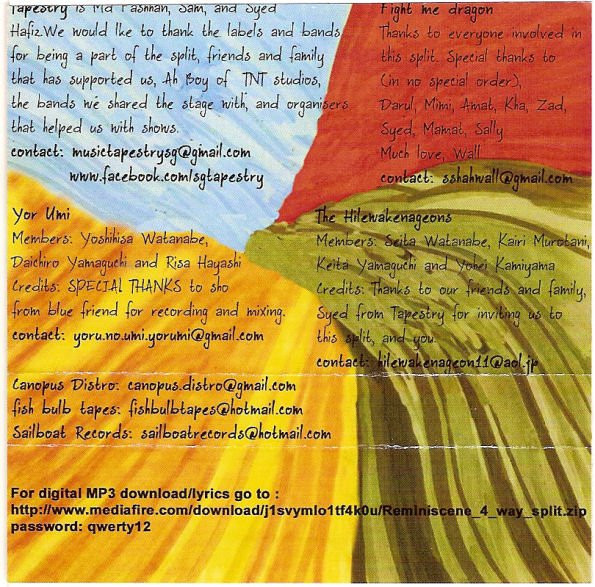 Tapestry is Md Fashhan, Sam, and Syed
Hafiz.We would lke to thank the labels and bands
for being a part of the split, friends and family
that has supported us, Ah Boy of TNT studios,
the bands we shared the stage with, and organisers
that helped us with shows.
contact: musictapestrysg@gmail.com
www.facebook.com/sgtapestry
Fight me dragon
Thanks to everyone involved in
this split. Special thanks to
(in no special order),
Darul, Mimi, Amat, Kha, Zad,
Syed, Mamat, Sally
Much love, Wall
contact: sshahwall@gmail.com
Yor Umi
Members: Yoshihisa Watanabe,
Daichiro Yamaguchi and Risa Hayashi
Credits: SPECIAL THANKS to sho
from blue friend for recording and mixing.
contact: yoru.no.umi.yorumi@gmail.com
The Hilewakenageons
Members: Seita Watanabe, Kairi Murotani,
Keita Yamaguchi and Yohei Kamiyama
Credits: Thanks to our friends and family,
Syed from Tapestry for inviting us to
this split, and you.
contact: hilewakenageon11@aol.jp
Canopus Distro: canopus.distro@gmail.com
fish bulb tapes: fishbulbtapes@hotmail.com
Sailboat Records: sailboatrecords@hotmail.com
For digital MP3 download/lyrics go to :
http://www.mediafire.com/download/j1svymlo1tf4k0u/Reminiscene_4_way_split.zip
password: qwerty12